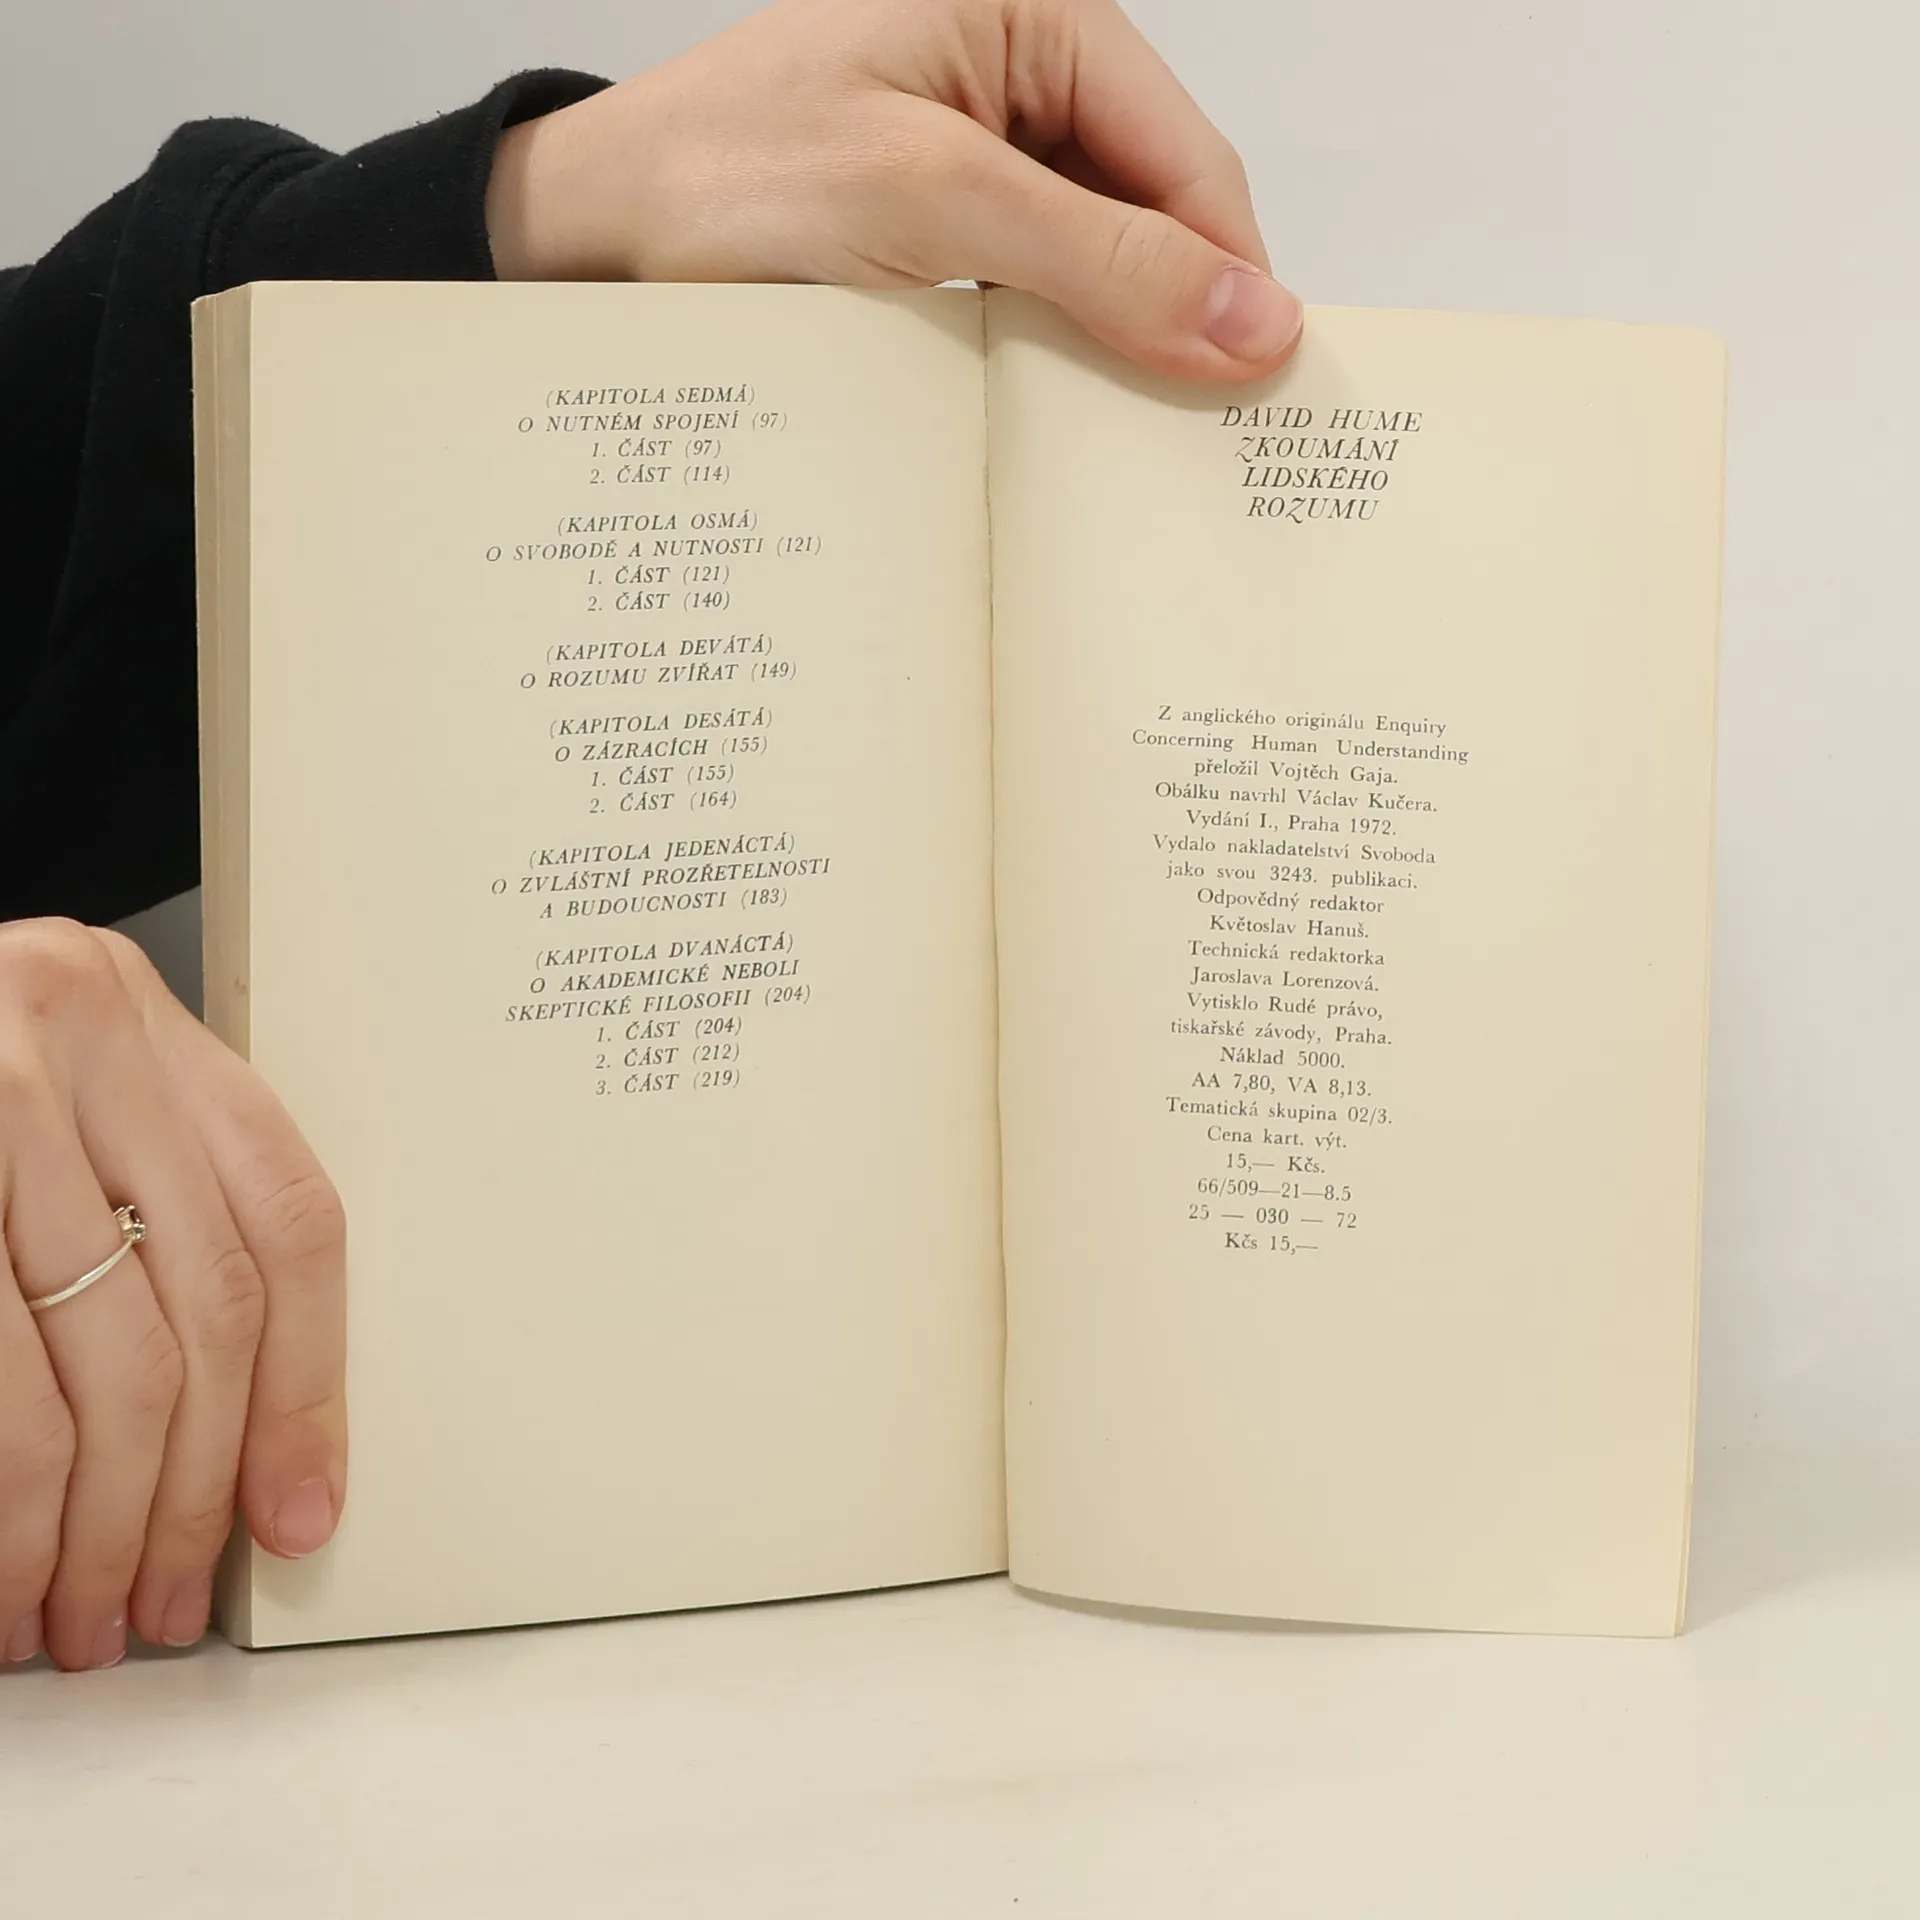 (KAPITOLA SEDMÁ)
O NUTNÉM SPOJENÍ (97)
1. ČÁST (97)
2. ČÁST (114)
(KAPITOLA OSMÁ)
O SVOBODĚ A NUTNOSTI (121)
1. ČÁST (121)
2. ČÁST (140)
(KAPITOLA DEVÁTÁ)
O ROZUMU ZVÍŘAT (149)
(KAPITOLA DESÁTÁ)
O ZÁZRACÍCH (155)
1. ČÁST (155)
2. ČÁST (164)
(KAPITOLA JEDENÁCTÁ)
O ZVLÁŠTNÍ PROZŘETELNOSTI
A BUDOUCNOSTI (183)
(KAPITOLA DVANÁCTÁ)
O AKADEMICKÉ NEBOLI
SKEPTICKÉ FILOSOFII (204)
1. ČÁST (204)
2. ČÁST (212)
3. ČÁST (219)
DAVID HUME
ZKOUMÁNÍ
LIDSKÉHO
ROZUMU
Z anglického originálu Enquiry
Concerning Human Understanding
přeložil Vojtěch Gaja.
Obálku navrhl Václav Kučera.
Vydání I., Praha 1972.
Vydalo nakladatelství Svoboda
jako svou 3243. publikaci.
Odpovědný redaktor
Květoslav Hanuš.
Technická redaktorka
Jaroslava Lorenzová.
Vytisklo Rudé právo,
tiskařské závody, Praha.
Náklad 5000.
AA 7,80, VA 8,13.
Tematická skupina 02/3.
Cena kart. výt.
15,— Kčs.
66/509—21—8.5
25 — 030 — 72
Kčs 15,—